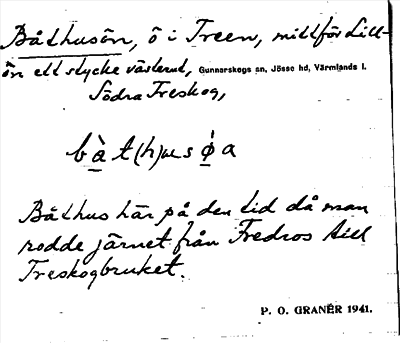 Båthusön, ö i Treen, mittför Lill-
ön ett stycke västerut, Gunnarskogs sn, Jösse hd, Värmlands l.
Södra Treskog,
bà̱t(h)us ǿ̱a
Båthus här på den tid då man
rodde järnet från Fredros till
Treskogbruket.
P. O. GRANÉR 1941.